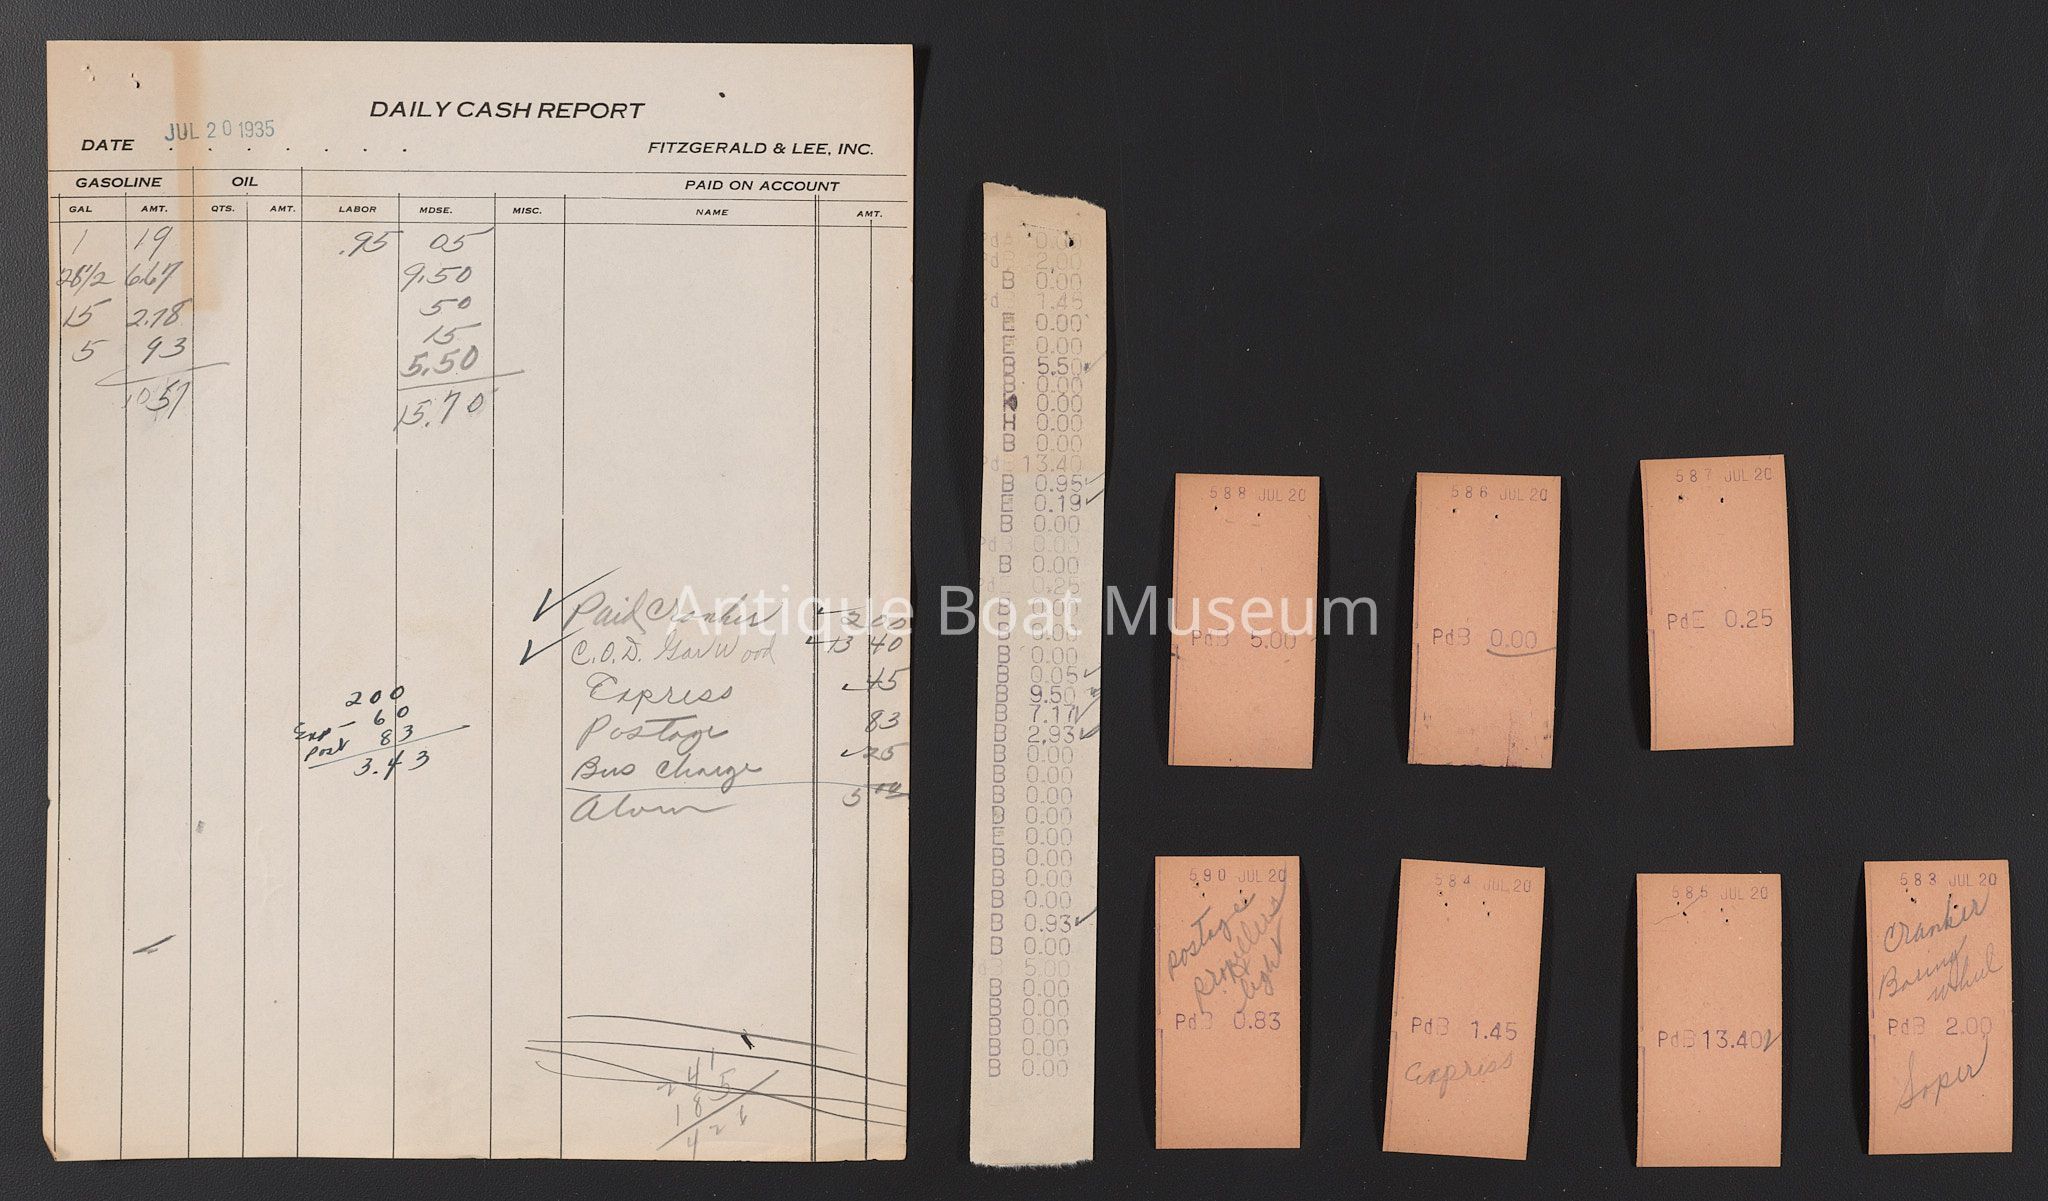 DAILY CASH REPORT
JUL 20 1935
DATE . . . . . . . FITZGERALD & LEE, INC.
GASOLINE OIL PAID ON ACCOUNT
GAL AMT. QTS. AMT. LABOR MDSE. MISC. NAME AMT.
1 19 .95 05
28 1/2 6.67 9.50
15 2.78 50
5 93 15
5.50
10 57
15.70
Paid Cranker 2 00
C.O.D. Gar Wood 13 40
Express 45
Postage 83
Bus Charge 25
5 00
200
60
Exp
Post 83
3.43
0.00
2.00
B 0.00
Pd 1.45
E 0.00
E 0.00
B 5.50
B 0.00
0.00
H 0.00
B 0.00
Pd 13.40
B 0.95
E 0.19
B 0.00
Pd 0.00
B 0.00
0.25
B 0.00
B 0.00
B 0.00
B 0.05
B 9.50
B 7.17
B 2.93
B 0.00
B 0.00
B 0.00
D 0.00
E 0.00
B 0.00
B 0.00
B 0.00
B 0.93
B 0.00
5.00
B 0.00
B 0.00
B 0.00
B 0.00
B 0.00
588 JUL 20
PdB 5.00
586 JUL 20
PdB 0.00
587 JUL 20
PdE 0.25
590 JUL 20
Postage
Propellers
light
PdB 0.83
584 JUL 20
PdB 1.45
Express
585 JUL 20
PdB 13.40
583 JUL 20
Cranker
Boring
Wheel
PdB 2.00
Soper
Antique Boat Museum